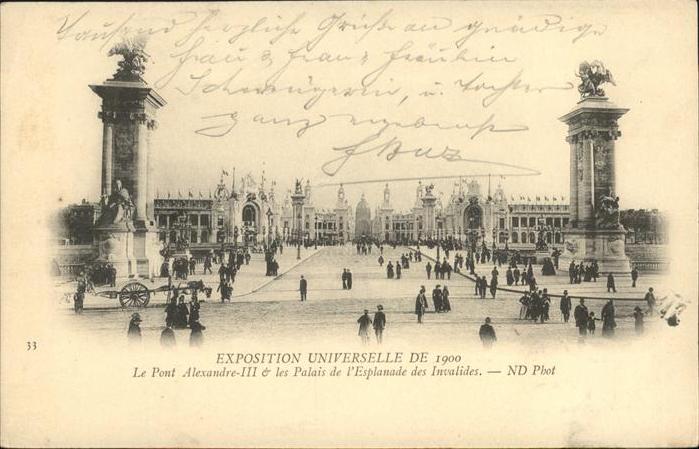 Tausend herzliche Grüße an gnädige
Frau
Schwägerin, u. Tochter
ganz ergebenst
33
EXPOSITION UNIVERSELLE DE 1900
Le Pont Alexandre-III & les Palais de l'Esplanade des Invalides. — ND Phot